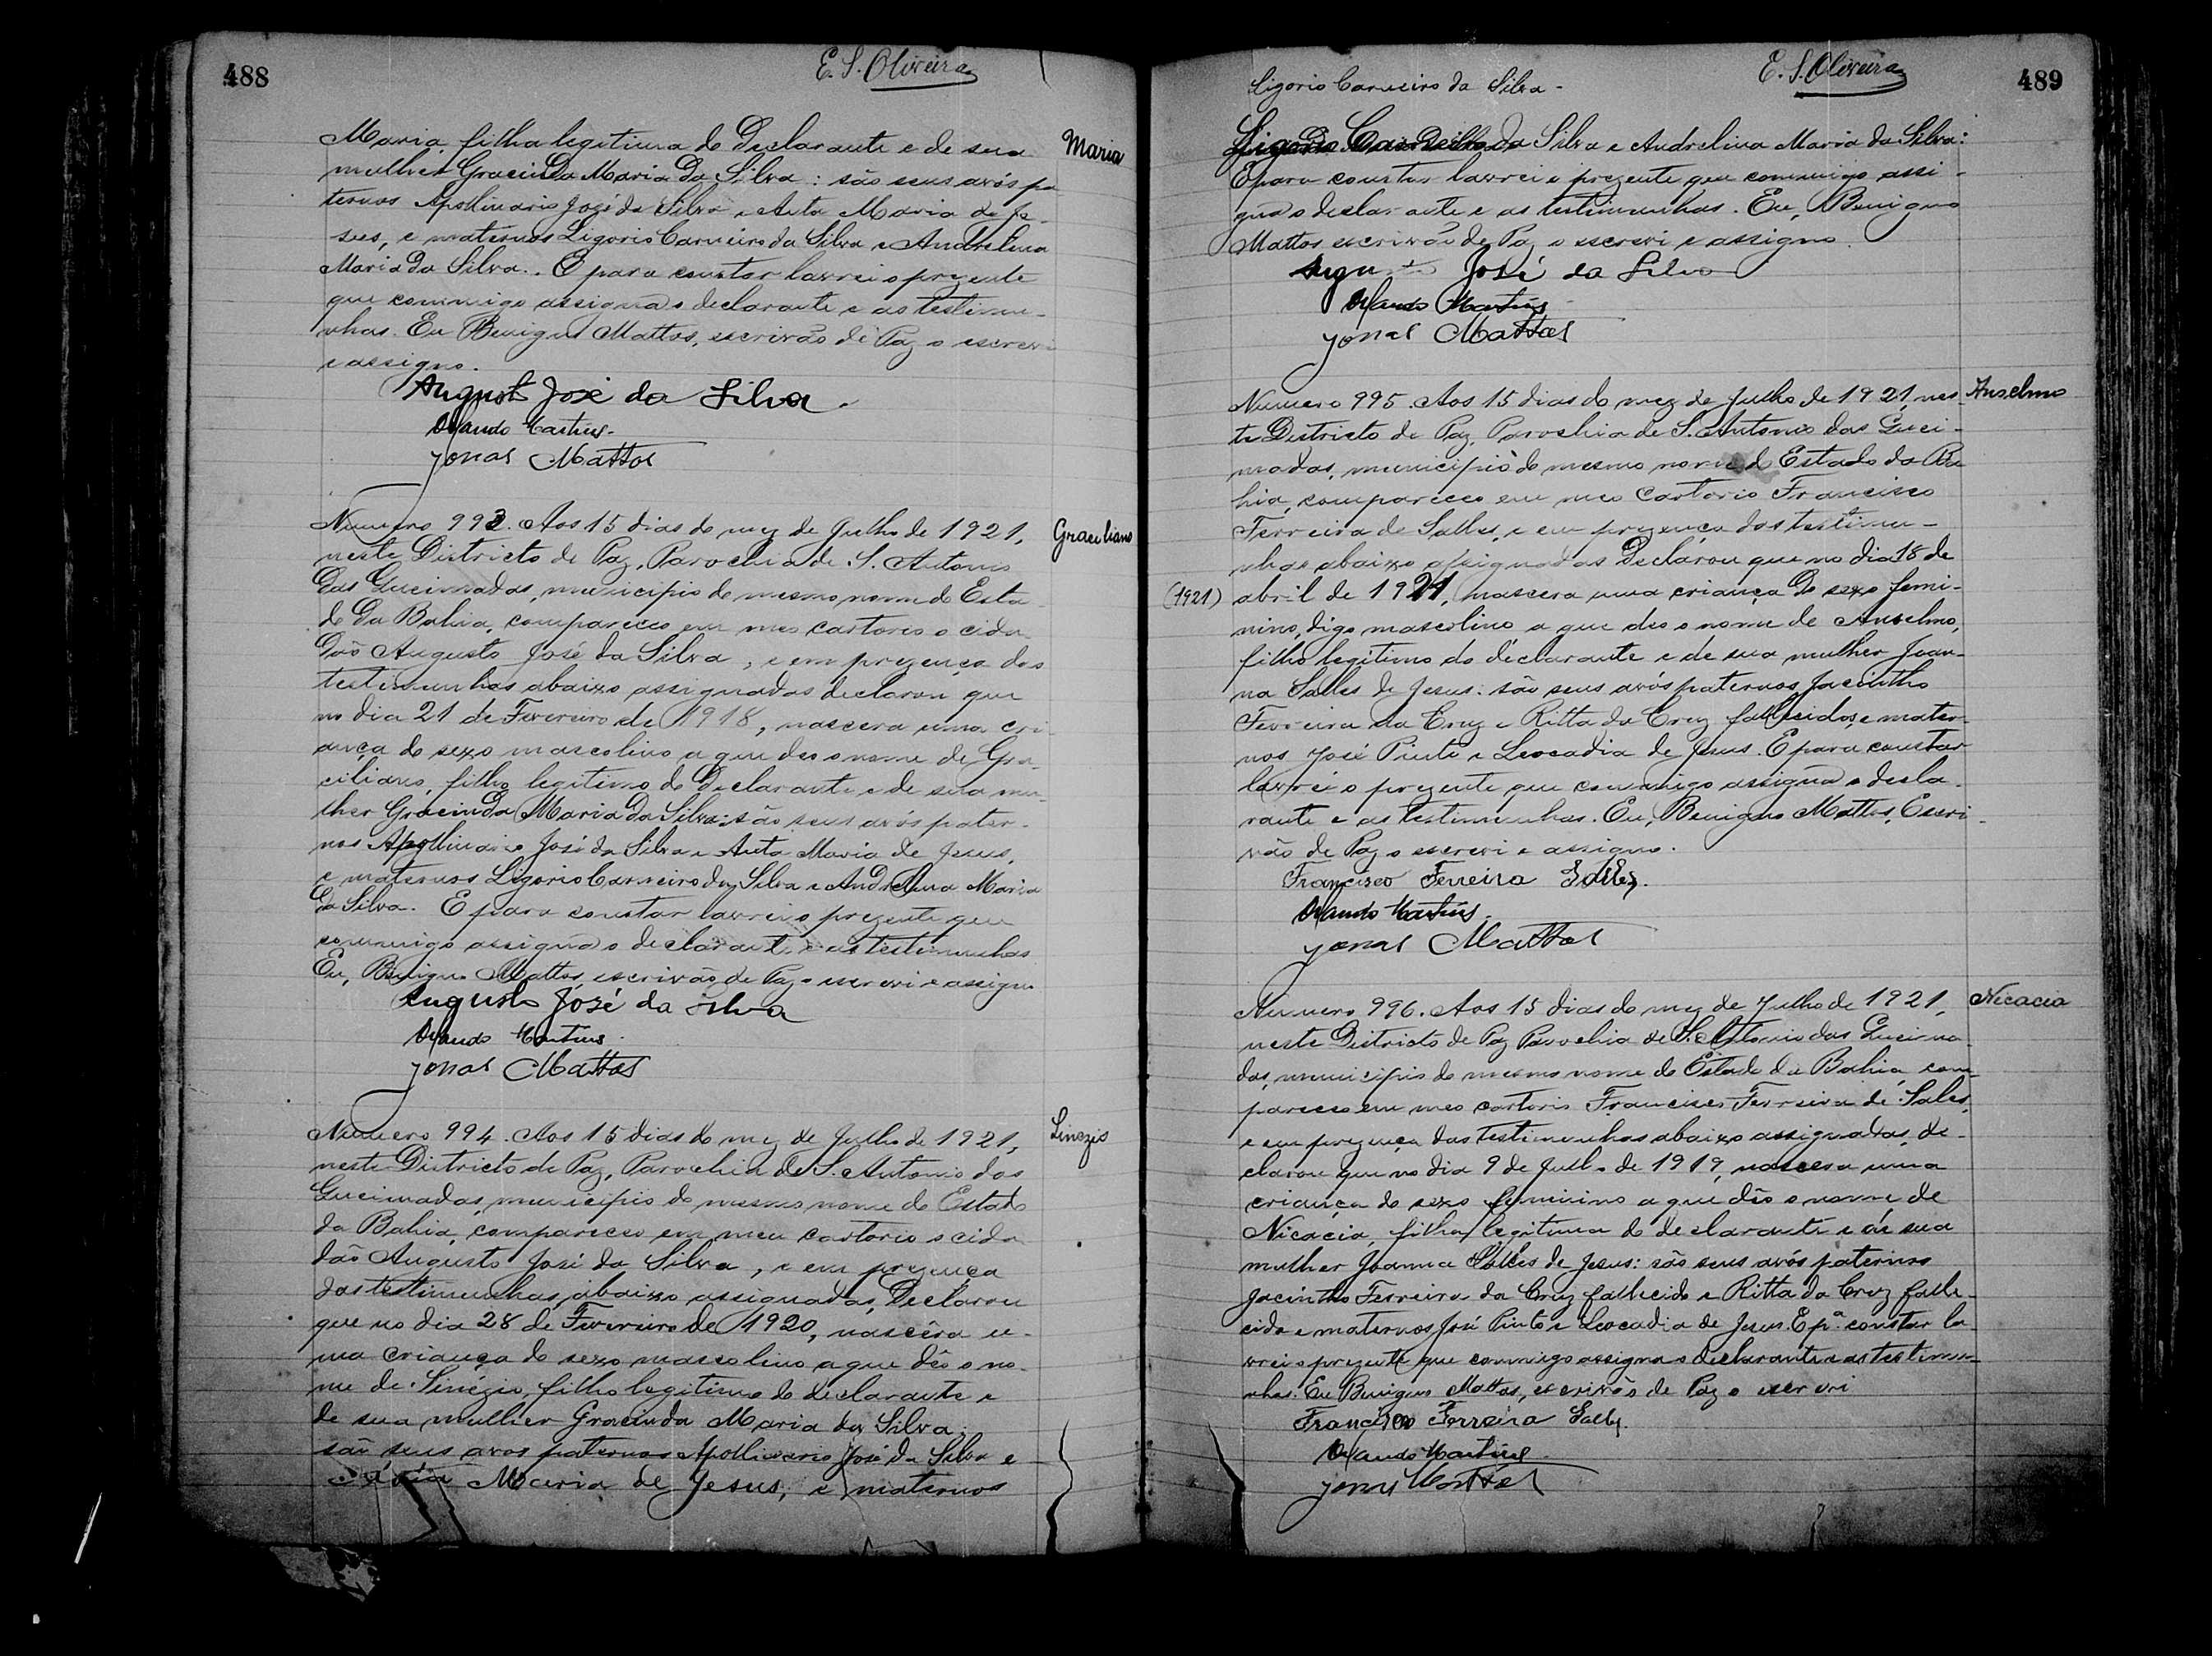 488
E. S. Oliveira
Maria, filha legitima do Declarante e de sua
Maria
mulher Gracinda Maria da Silva: são seus avós pa
ternos Apollinario José da Silva e Anta Maria de Je-
sus, e maternos Ligorio Carneiro da Silva e Andrelina
Maria da Silva. E para constar lavrei o prezente
que commigo assigna o declarante e as testimu-
nhas. Eu Benigno Mattos, escrivão de Paz o escrevi
e assigno.
Augusto José da Silva.
Orlando Martins.
Jonas Mattos
Numero 993. Aos 15 dias do mez de Julho de 1921,
Graciliano
neste Districto de Paz, Parochia de S. Antonio
das Queimadas, municipio do mesmo nome do Esta
do da Bahia, compareceo em meo cartorio o cida
dão Augusto José da Silva, e em prezença das
testimunhas abaixo assignadas declarou que
no dia 21 de Fevereiro de 1918, nascera uma cri
ança do sexo mascolino a que deo o nome de Gra-
ciliano, filho legitimo do Declarante e de sua mu-
lher Gracinda Maria da Silva: são seus avós pater-
nos Apollinario José da Silva e Anta Maria de Jesus,
e maternos Ligorio Carneiro da Silva e Andrelina Maria
da Silva. E para constar lavrei o prezente que
commigo assigna o declarante e as testimunhas
Eu, Benigno Mattos, escrivão de Paz o escrevi e assigno
Augusto José da Silva
Orlando Martins.
Jonas Mattos
Numero 994. Aos 15 dias do mez de Julho de 1921,
Sinezio
neste Districto de Paz, Parochia de S. Antonio das
Queimadas, municipio do mesmo nome do Estado
da Bahia, compareceo em meu cartorio o cida
dão Augusto José da Silva, e em prezença
das testimunhas abaixo assignadas, Declarou
que no dia 28 de Fevereiro de 1920, nascêra u-
ma criança do sexo mascolino a que dêo o no-
me de Sinézio, filho legitimo do declarante e
de sua mulher Gracinda Maria da Silva:
são seus avos paternos Apollinario José da Silva e
Maria de Jesus, e maternos
489
E. S. Oliveira
Ligorio Carneiro da Silva -
Ligorio da Silva e Andrelina Maria da Silva:
E para constar lavrei o prezente que commigo assi-
gna o declarante e as testimunhas. Eu, Benigno
Mattos escrivão de Paz o escrevi e assigno.
José da Silva
Orlando Martins
Jonas Mattos
Numero 995. Aos 15 dias do mez de Julho de 1921, nes-
Anselmo
te Districto de Paz, Parochia de S. Antonio das Quei-
madas, municipio do mesmo nome do Estado da Ba
hia, compareceo em meo Cartorio Francisco
Ferreira de Salles, e em prezença das testimu-
nhas abaixo assignadas Declarou que no dia 18 de
(1921)
abril de 1921, nascera uma criança do sexo femi-
nino, digo mascolino a que deo o nome de Anselmo,
filho legitimo do declarante e de sua mulher Joan-
na Salles de Jesus: são seus avós paternos Jacintho
Ferreira da Cruz e Ritta da Cruz fallecidos, e mater-
nos José Pinto e Leocadia de Jesus. E para constar
lavrei o prezente que commigo assigna o decla-
rante e as testimunhas. Eu, Benigno Mattos, Escri-
vão de Paz o escrevi e assigno.
Francisco Ferreira Salles.
Orlando Martins.
Jonas Mattos
Numero 996. Aos 15 dias do mez de Julho de 1921,
Nicacia
neste Districto de Paz Parochia de S. Antonio das Queima-
das, municipio do mesmo nome do Estado da Bahia, com-
pareceo em meo cartorio Francisco Ferreira de Sales,
e em prezença das testimunhas abaixo assignadas, de-
clarou que no dia 9 de Julho de 1919, nascera uma
criança do sexo feminino a que dêo o nome de
Nicacia, filha legitima do declarante e de sua
mulher Joanna Salles de Jesus: são seus avós paternos
Jacintho Ferreira da Cruz fallecido e Ritta da Cruz falle-
cida e maternos José Pinto e Leocadia de Jesus. E pª constar la-
vrei o prezente que commigo assigna o declarante e as testimu-
nhas. Eu Benigno Mattos, escrivão de Paz o escrevi
Francisco Ferreira Salles.
Orlando Martins
Jonas Mattos